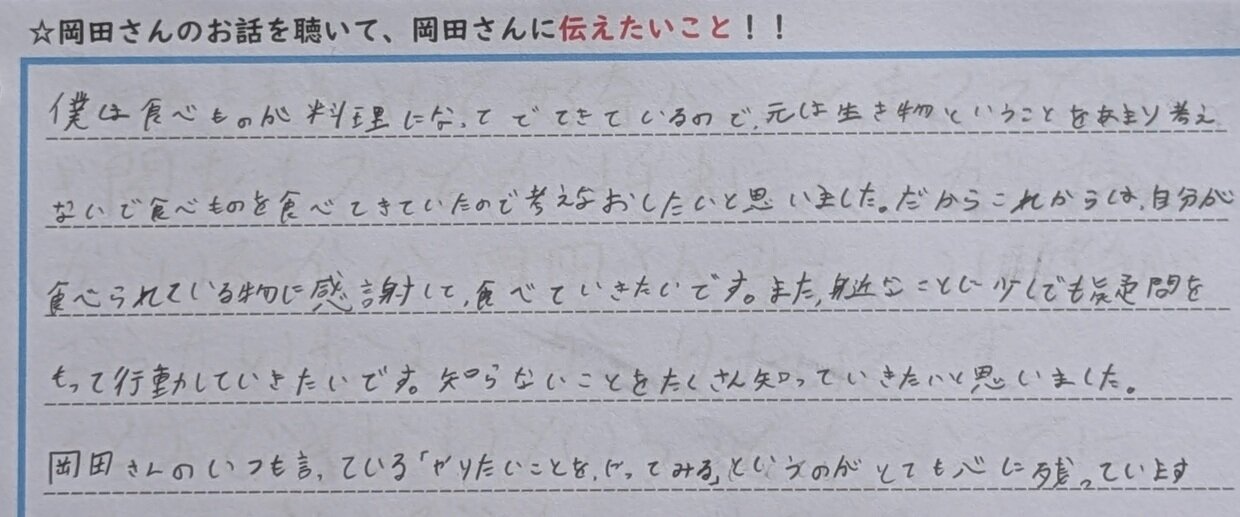 ☆岡田さんのお話を聴いて、岡田さんに伝えたいこと！！
僕は食べものが料理になってでてきているので、元は生き物ということをあまり考え
ないで食べものを食べてきていたので考えなおしたいと思いました。だからこれからは、自分が
食べられている物に感謝して、食べていきたいです。また、身近なことに少しでも疑問を
もって行動していきたいです。知らないことをたくさん知っていきたいと思いました。
岡田さんのいつも言っている「やりたいことを、やってみる」というのがとても心に残っています